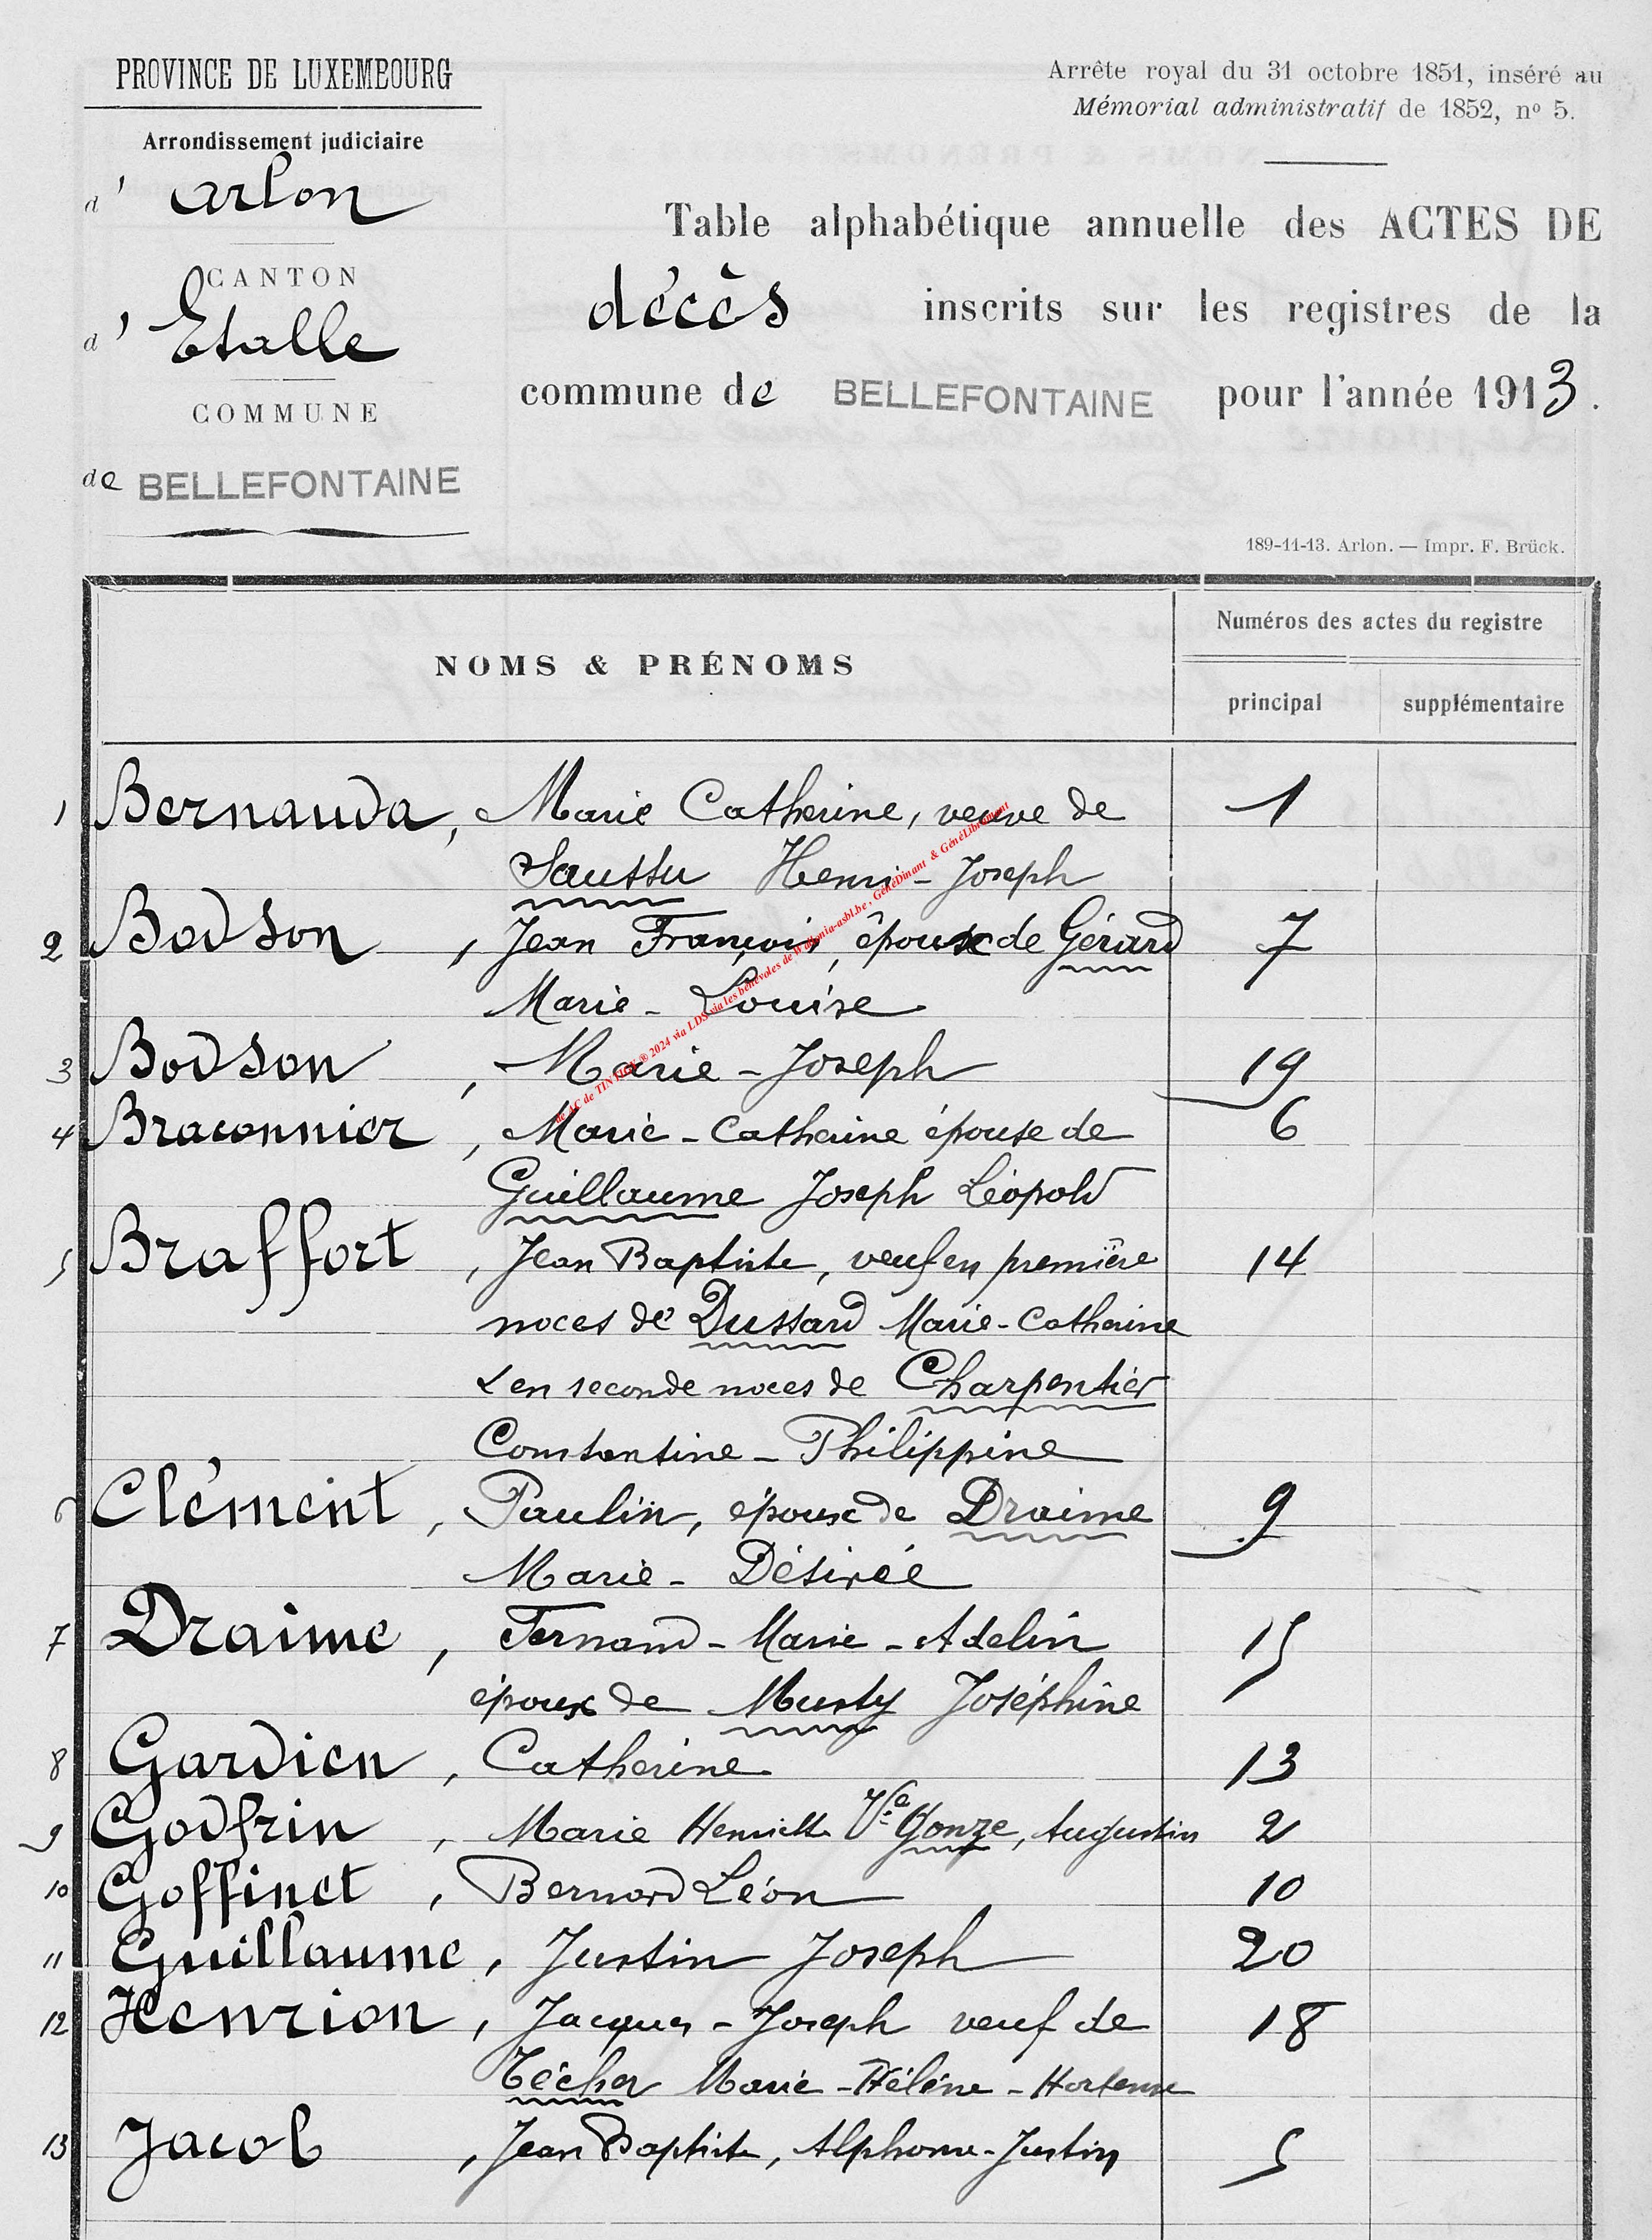 PROVINCE DE LUXEMBOURG
Arrondissement judiciaire
d' Arlon
CANTON
d' Etalle
COMMUNE
de BELLEFONTAINE
Arrête royal du 31 octobre 1851, inséré au
Mémorial administratif de 1852, nº 5.
Table alphabétique annuelle des ACTES DE
décès inscrits sur les registres de la
commune de BELLEFONTAINE pour l'année 1913.
189-11-13. Arlon. — Impr. F. Brück.
NOMS & PRÉNOMS
Numéros des actes du registre
principal supplémentaire
1 Bernauda, Marie Catherine, veuve de 1
Saussu Henri-Joseph
2 Bodson, Jean François, époux de Gérard 7
Marie-Louise
3 Bodson, Marie-Joseph 19
4 Braconnier, Marie-Catherine épouse de 6
Guillaume Joseph Léopold
5 Braffort, Jean Baptiste, veuf en première 14
noces de Dussard Marie-Catherine
& en seconde noces de Charpentier
Constantine-Philippine
6 Clément, Paulin, époux de Draime 9
Marie-Désirée
7 Draime, Fernand-Marie-Adelin 15
époux de Musty Joséphine
8 Gardien, Catherine 13
9 Godfrin, Marie Henriette Vve Gonze, Augustin 2
10 Goffinet, Bernard Léon 10
11 Guillaume, Justin Joseph 20
12 Henrion, Jacques-Joseph veuf de 18
Técher Marie-Hélène-Hortense
13 Jacob, Jean Baptiste, Alphonse-Justin 5
AC de TINTIGNY ® 2024 via LDS via les bénévoles de Wallonia-asbl.be, GénéDinant & GénéLibramont